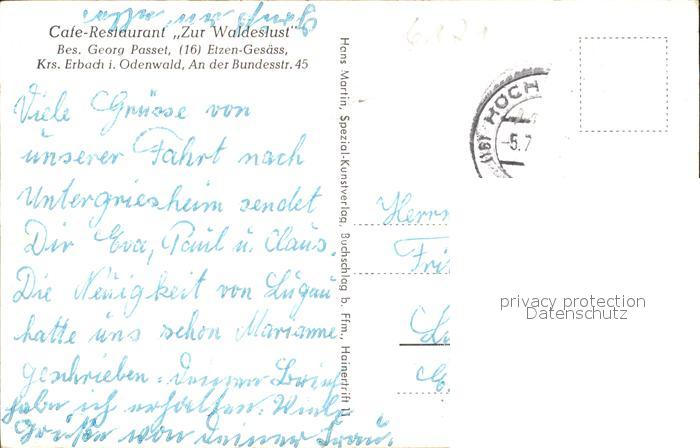 Cafe-Restaurant „Zur Waldeslust"
Bes. Georg Passet, (16) Etzen-Gesäss,
Krs. Erbach i. Odenwald, An der Bundesstr. 45
Viele Grüsse von
unserer Fahrt nach
Untergriesheim sendet
Dir Eva, Paul u. Claus.
Die Neuigkeit von Lugau
hatte uns schon Marianne
geschrieben. Deinen Brief
habe ich erhalten. Viele
Grüße von Deiner Frau.
Hans Martin, Spezial-Kunstverlag, Buchschlag b. Ffm., Hainertrift 11
(16) HÖCH
-5.7
Herrn
Fri
privacy protection
Datenschutz